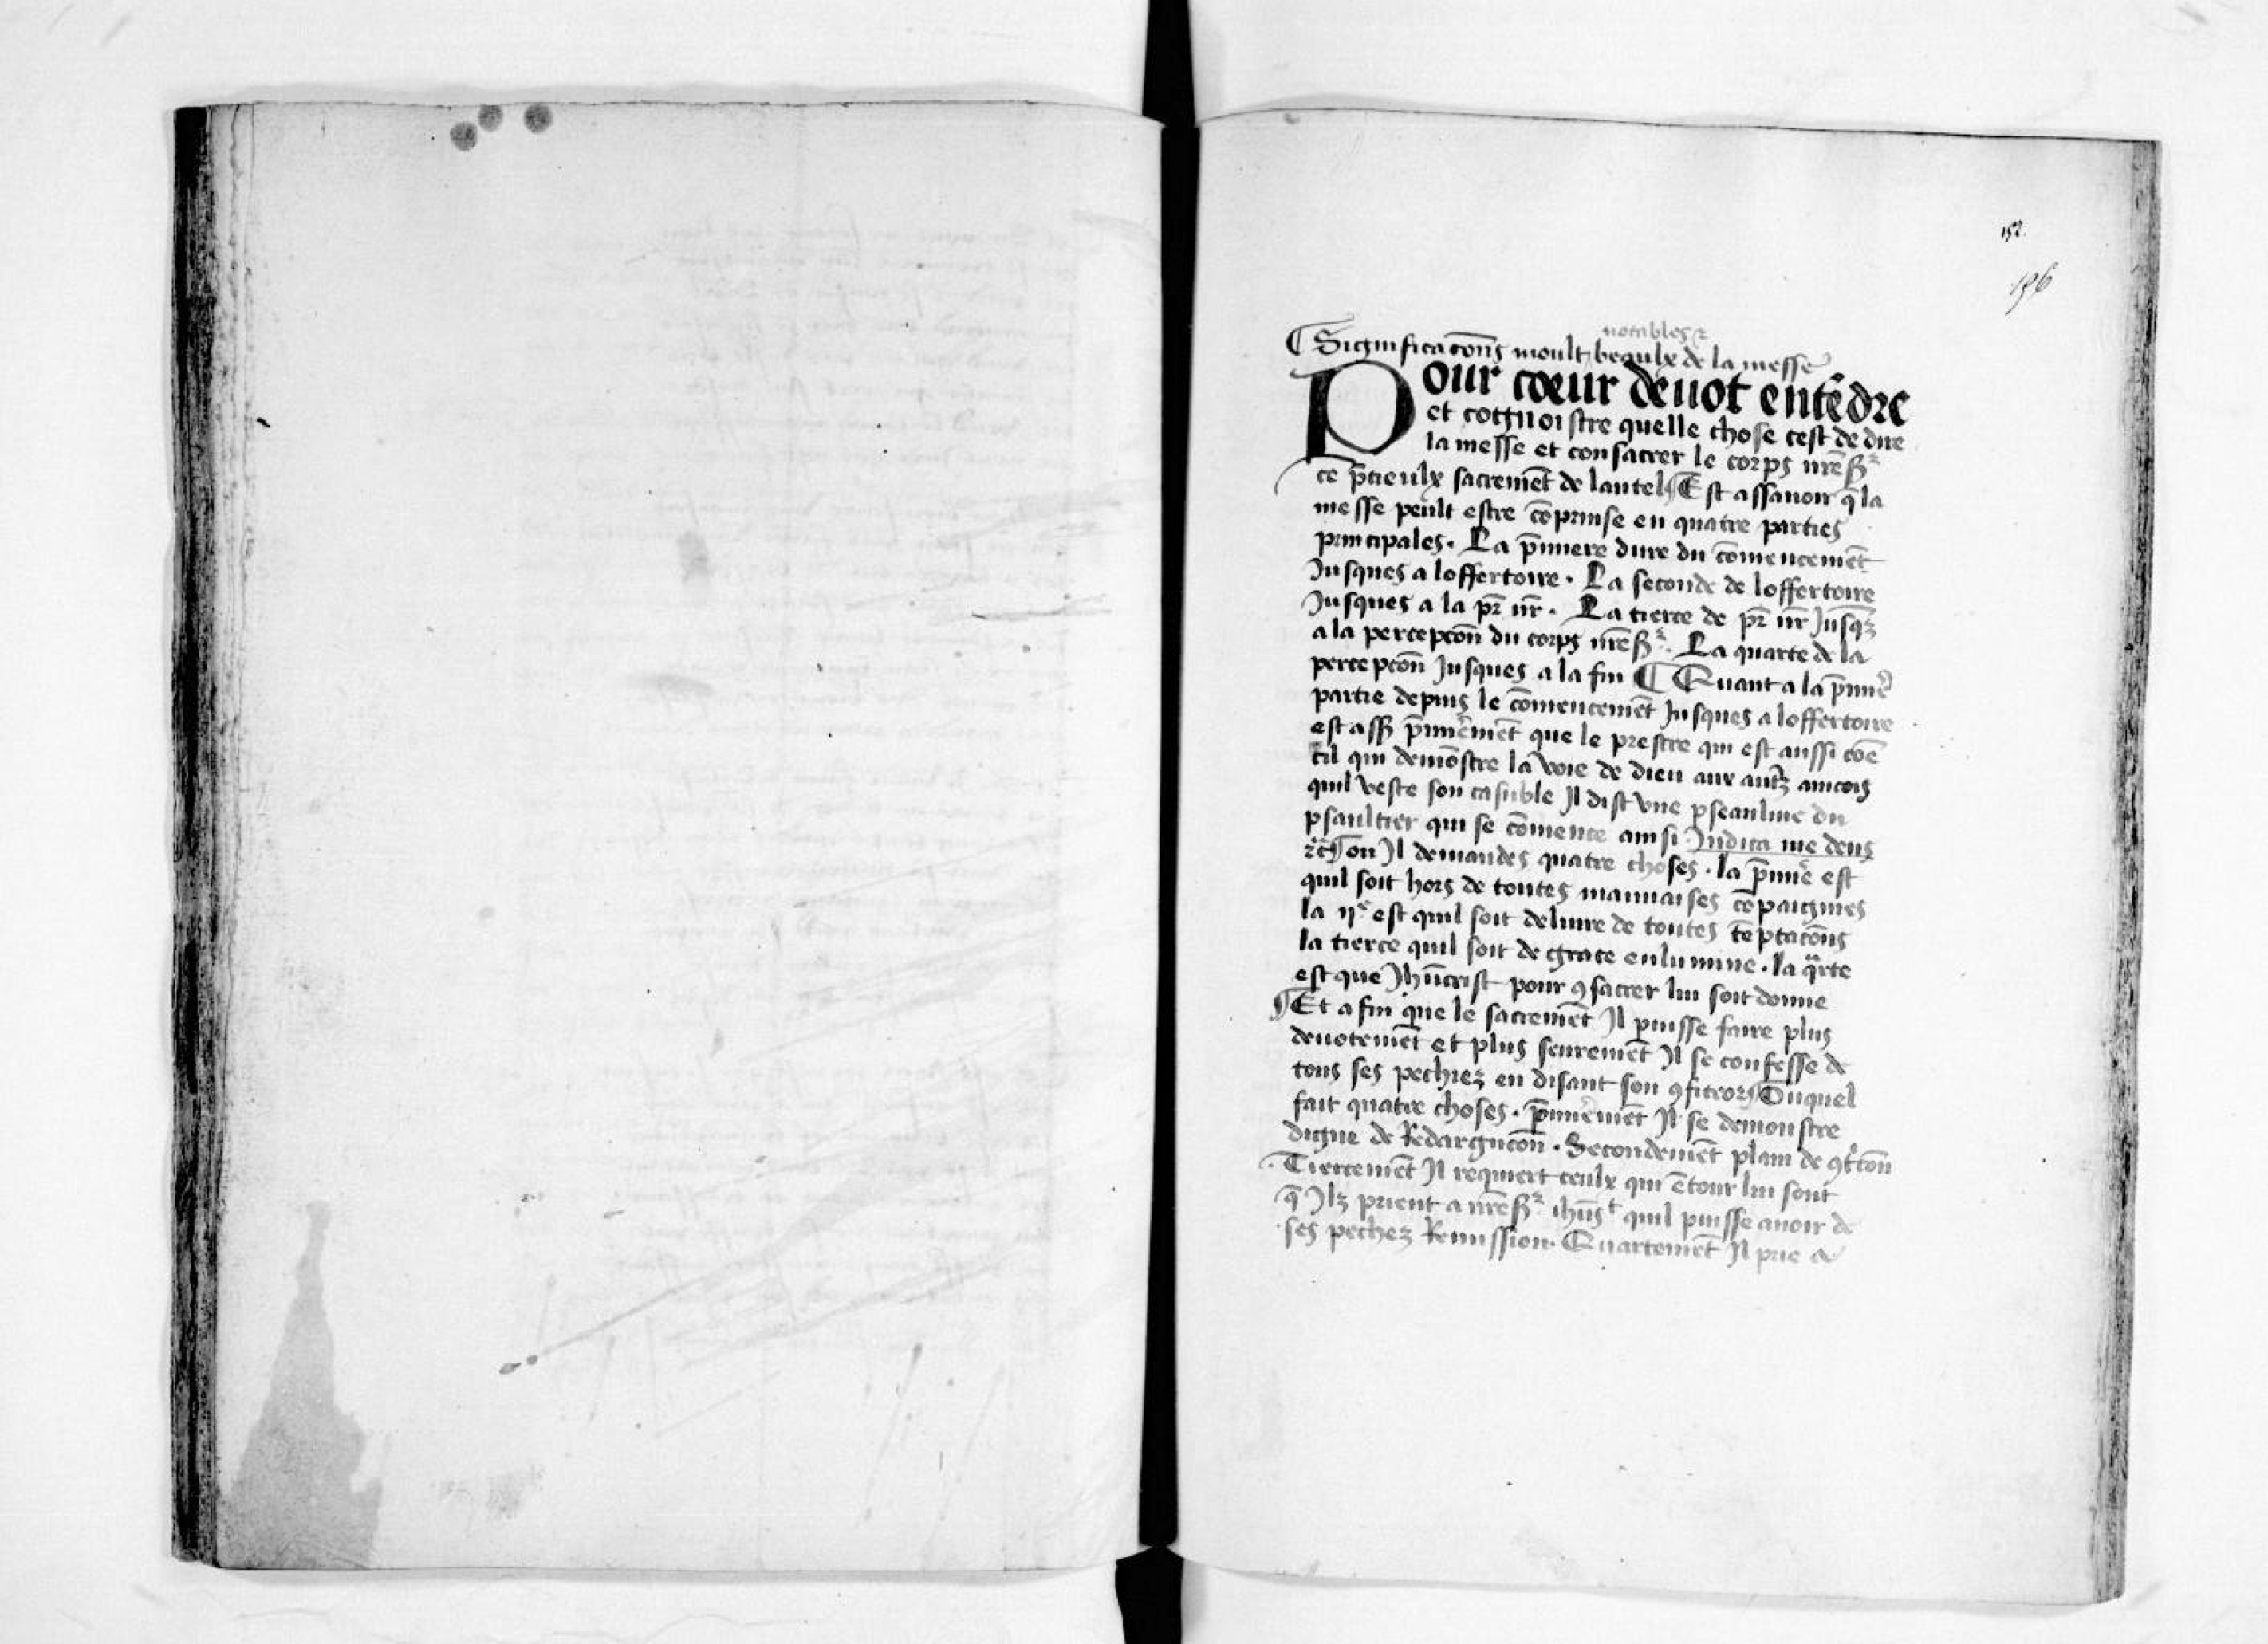 152.
136
notables ⁊
¶ Significacōns moult beaulx de la messe
Pour coeur deuot entēdre
et congnoistre quelle chose cest de dire
la messe et consacrer le corps nrēSr
ce p̄cieulx sacremēt de lautel ¶ Est assauoir q̄ la
messe peult estre cōprinse en quatre parties
principales. La p̄miere dure du cōmencemēt
Jusques a loffertoire. La seconde de loffertoire
Jusques a la pr̄ nr̄. La tierce de pr̄ nr̄ Jusqz̄
a la percepcōn du corps nrēSr. La quarte de la
percepcōn Jusques a la fin ¶ Quant a la p̄mie
partie depuis le cōmencemēt Jusques a loffertoire
est ass p̄miemēt que le prestre qui est aussi cōe
cil qui demōstre la voie de dieu aux autz̄ aincois
quil veste son casuble Jl dist vne pseaulme du
psaultier qui se cōmence ainsi Judica me deus
⁊c̄ ¶ ou Jl demandes quatre choses. la p̄mie est
quil soit hors de toutes mauuaises cōpaignies
la ije est quil soit deliure de toutes tēptacōns
la tierce quil soit de grace enlumine. la qarte
est que Jhūcrist pour ꝯsacrer lui soit donne
¶ Et afin que le sacremēt Jl puisse faire plus
deuotemēt et plus seuremēt Jl se confesse de
tous ses pechiez en disant son ꝯfiteor ¶ Duquel
fait quatre choses. p̄miemēt Jl se demonstre
digne de Redargucōn. Secondemēt plain de ꝯtͥcōn
. Tiercemēt Jl requiert ceulx qui ētour lui sont
q̄ Jlz prient a nrēSr ihūst quil puisse auoir de
ses pechez Remission. Quartemēt Jl prie de